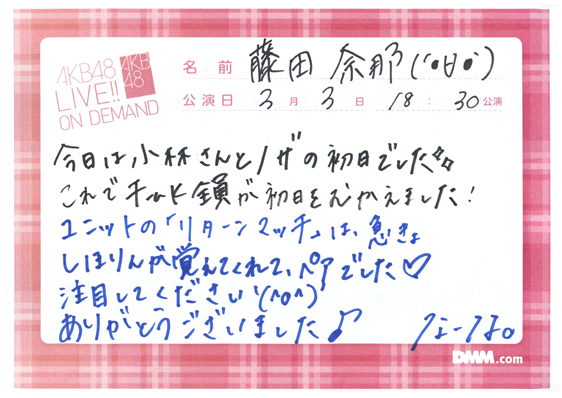 AKB48
LIVE!!
ON DEMAND
AKB
48
名前 藤田 奈那(´•∀•`)
公演日 3月3日 18:30公演
今日は小林さんとノザの初日でした
これでチームK全員が初日をむかえました!
ユニットの「リターンマッチ」は、急きょ
しほりんが覚えてくれて、ペアでした♡
注目してください(^o^)
ありがとうございました♪ なーなo
DMM.com